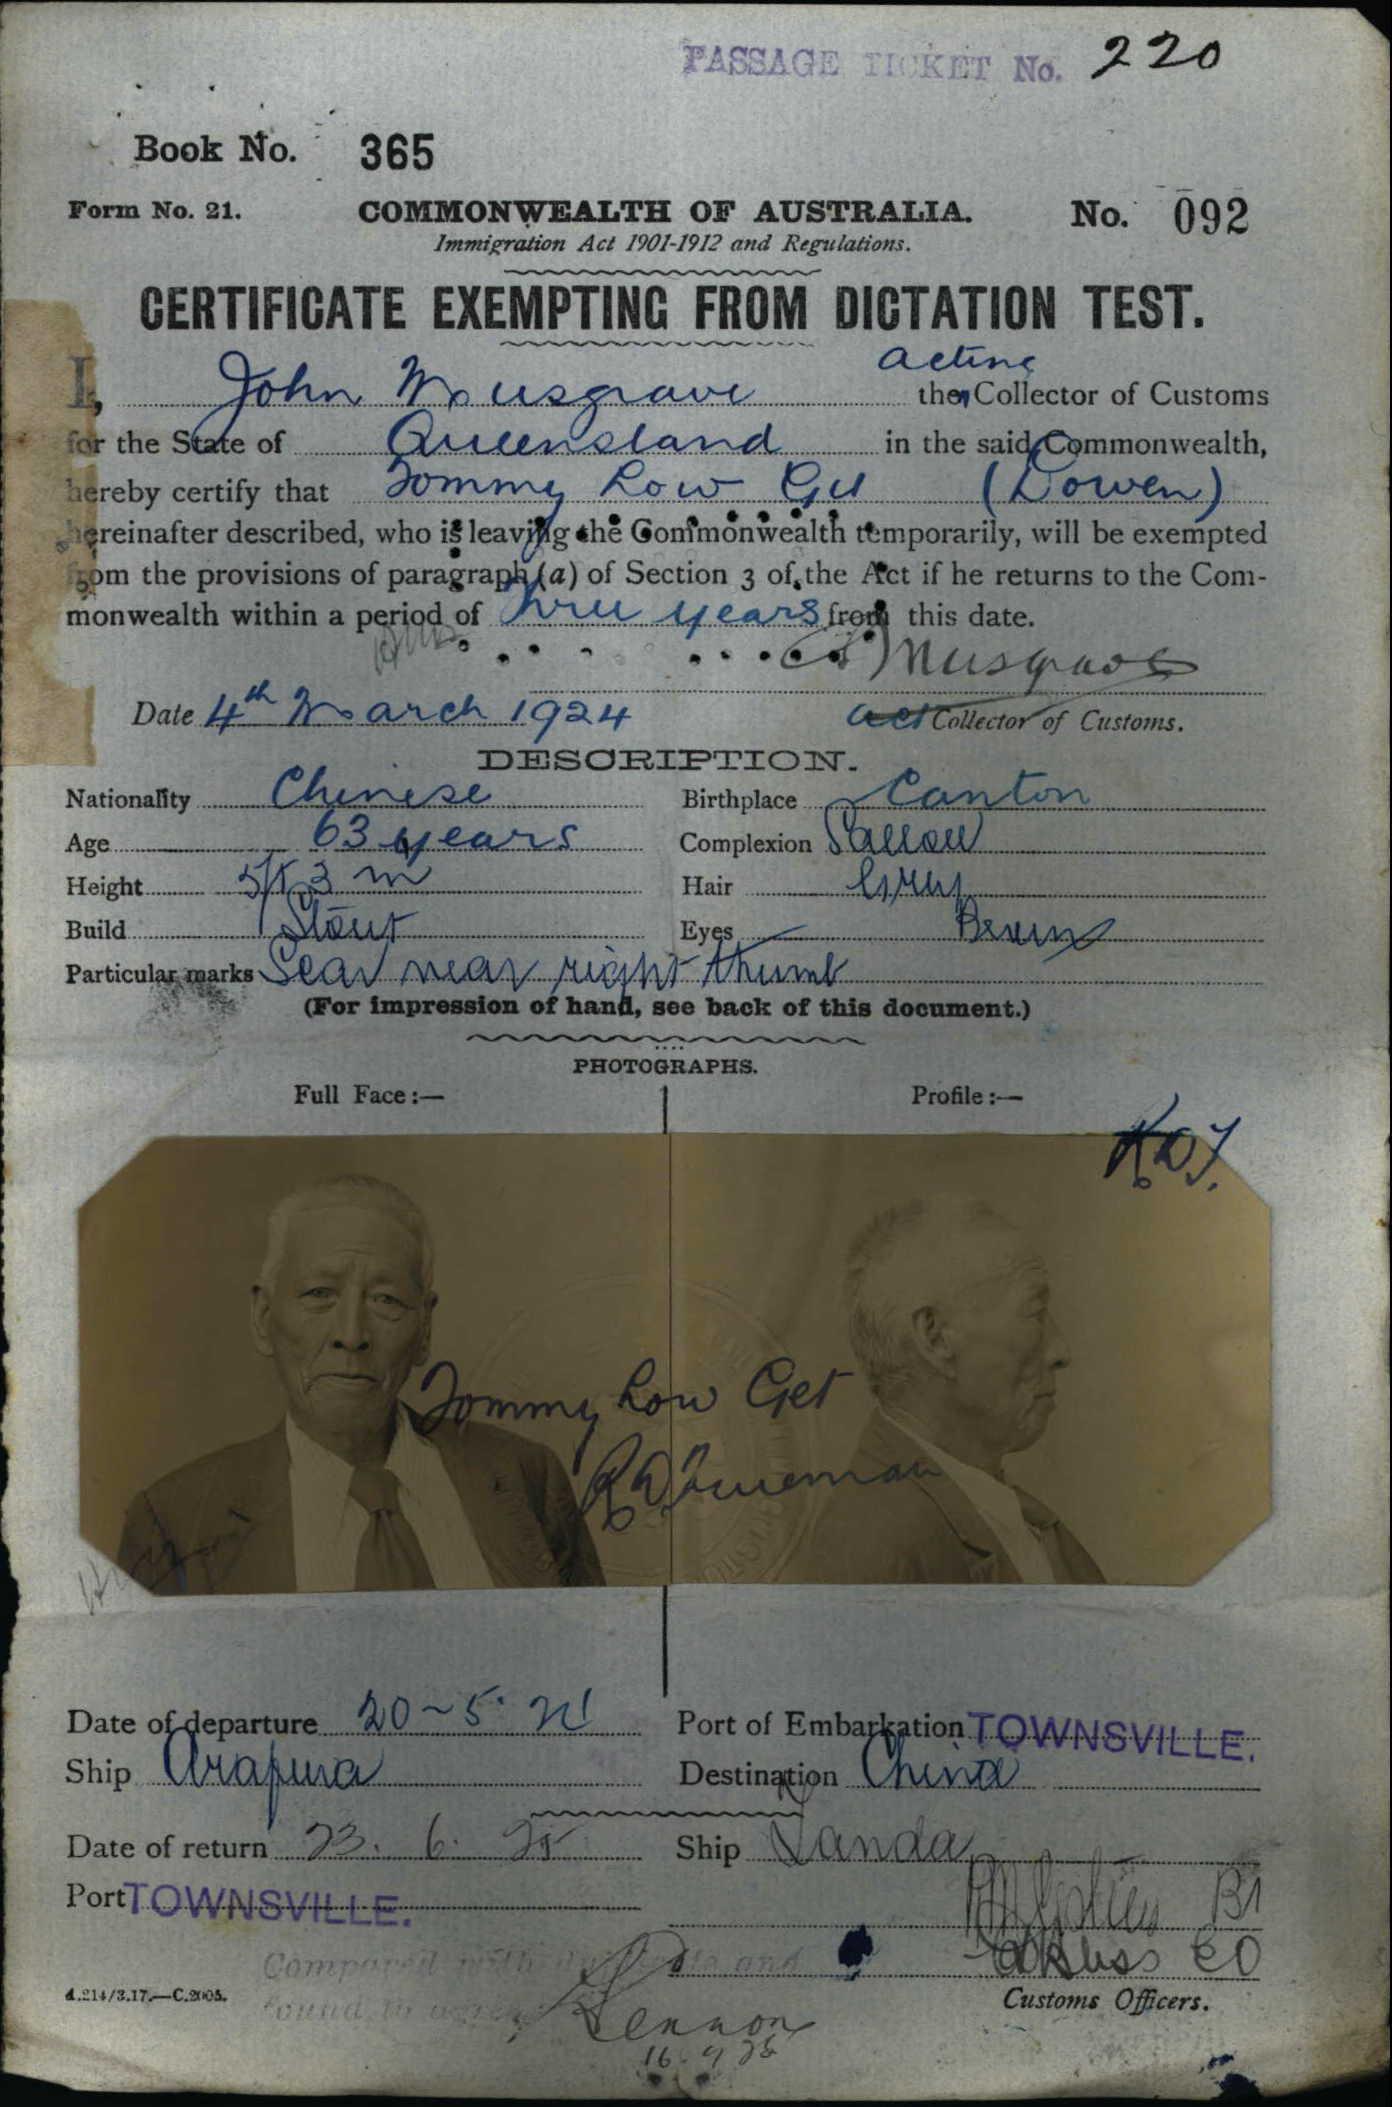 PASSAGE TICKET No. 220
Book No. 365
Form No. 21. COMMONWEALTH OF AUSTRALIA. No. 092
Immigration Act 1901-1912 and Regulations.
CERTIFICATE EXEMPTING FROM DICTATION TEST.
acting
I, John Musgrave the Collector of Customs
for the State of Queensland in the said Commonwealth,
hereby certify that Tommy Low Get (Bowen)
hereinafter described, who is leaving the Commonwealth temporarily, will be exempted
from the provisions of paragraph (a) of Section 3 of the Act if he returns to the Com-
monwealth within a period of Three years from this date.
Musgrave
Date 4th March 1924 act Collector of Customs.
DESCRIPTION.
Nationality Chinese Birthplace Canton
Age 63 years Complexion Sallow
Height 5ft 3 in Hair Grey
Build Stout Eyes Brown
Particular marks Scar near right thumb
(For impression of hand, see back of this document.)
PHOTOGRAPHS.
Full Face:— Profile:—
Tommy Low Get
Date of departure 20-5-24 Port of Embarkation TOWNSVILLE.
Ship Arafura Destination China
Date of return 23. 6. 25 Ship Tanda
Port TOWNSVILLE.
Compared with duplicate and
found to agree
A.214/3.17.—C.2005. Customs Officers.
Lennon